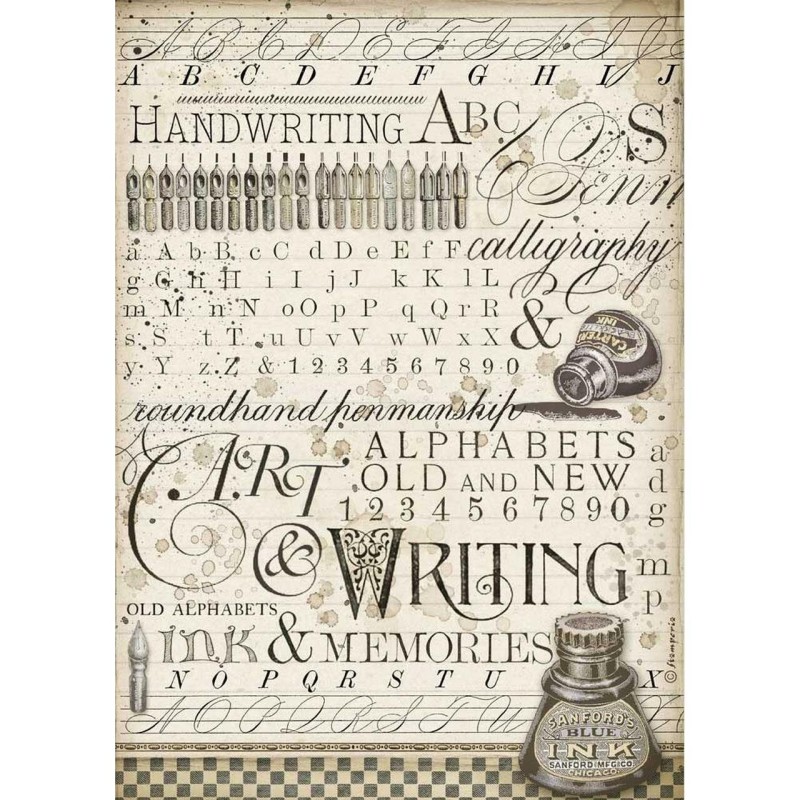 A B C D E F G H I J
A B C D E F G H I J
HANDWRITING ABC
S
Penn
a A b B c C d D e E f F
calligraphy
g G h H i I j J k K l L
m M n N o O p P q Q r R
&
s S t T u U v V w W x X
CARTER'S
INK
y Y z Z & 1 2 3 4 5 6 7 8 9 0
roundhand penmanship
ART
ALPHABETS
OLD AND NEW
1 2 3 4 5 6 7 8 9 0
a
d
g
& WRITING
m
p
OLD ALPHABETS
INK & MEMORIES
N O P Q R S T U X
© stamperia
N O P Q R S T U
SANFORD'S
BLUE
INK
SANFORD MFG CO
CHICAGO